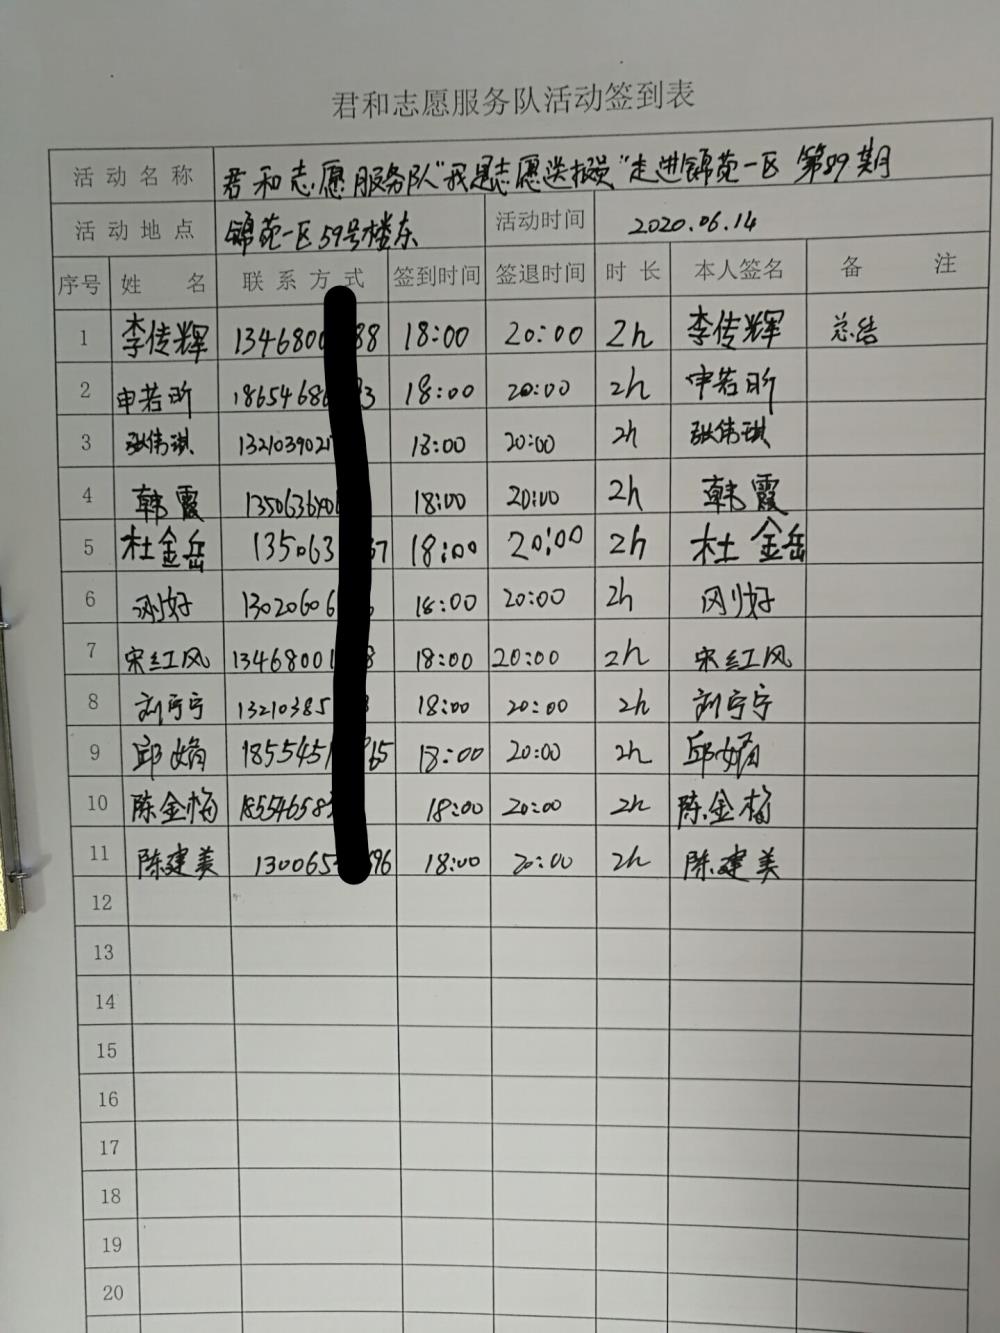 君和志愿服务队活动签到表
活动名称 君和志愿服务队"我是志愿送报员"走进锦苑一区 第89期
活动地点 锦苑一区59号楼东 活动时间 2020.06.14
序号 姓名 联系方式 签到时间 签退时间 时长 本人签名 备注
1 李传辉 1346800 88 18:00 20:00 2h 李传辉 总结
2 申若昕 18654686 3 18:00 20:00 2h 申若昕
3 张伟琪 132103902 18:00 20:00 2h 张伟琪
4 韩霞 18:00 20:00 2h 韩霞
5 杜金岳 135063 37 18:00 20:00 2h 杜金岳
6 13020606 18:00 20:00 2h
7 宋红风 13468001 8 18:00 20:00 2h 宋红风
8 刘宁宁 13210385 18:00 20:00 2h 刘宁宁
9 邱娟 1855451 65 18:00 20:00 2h 邱娟
10 陈金梅 18554658 18:00 20:00 2h 陈金梅
11 陈建美 130065 696 18:00 20:00 2h 陈建美
12
13
14
15
16
17
18
19
20